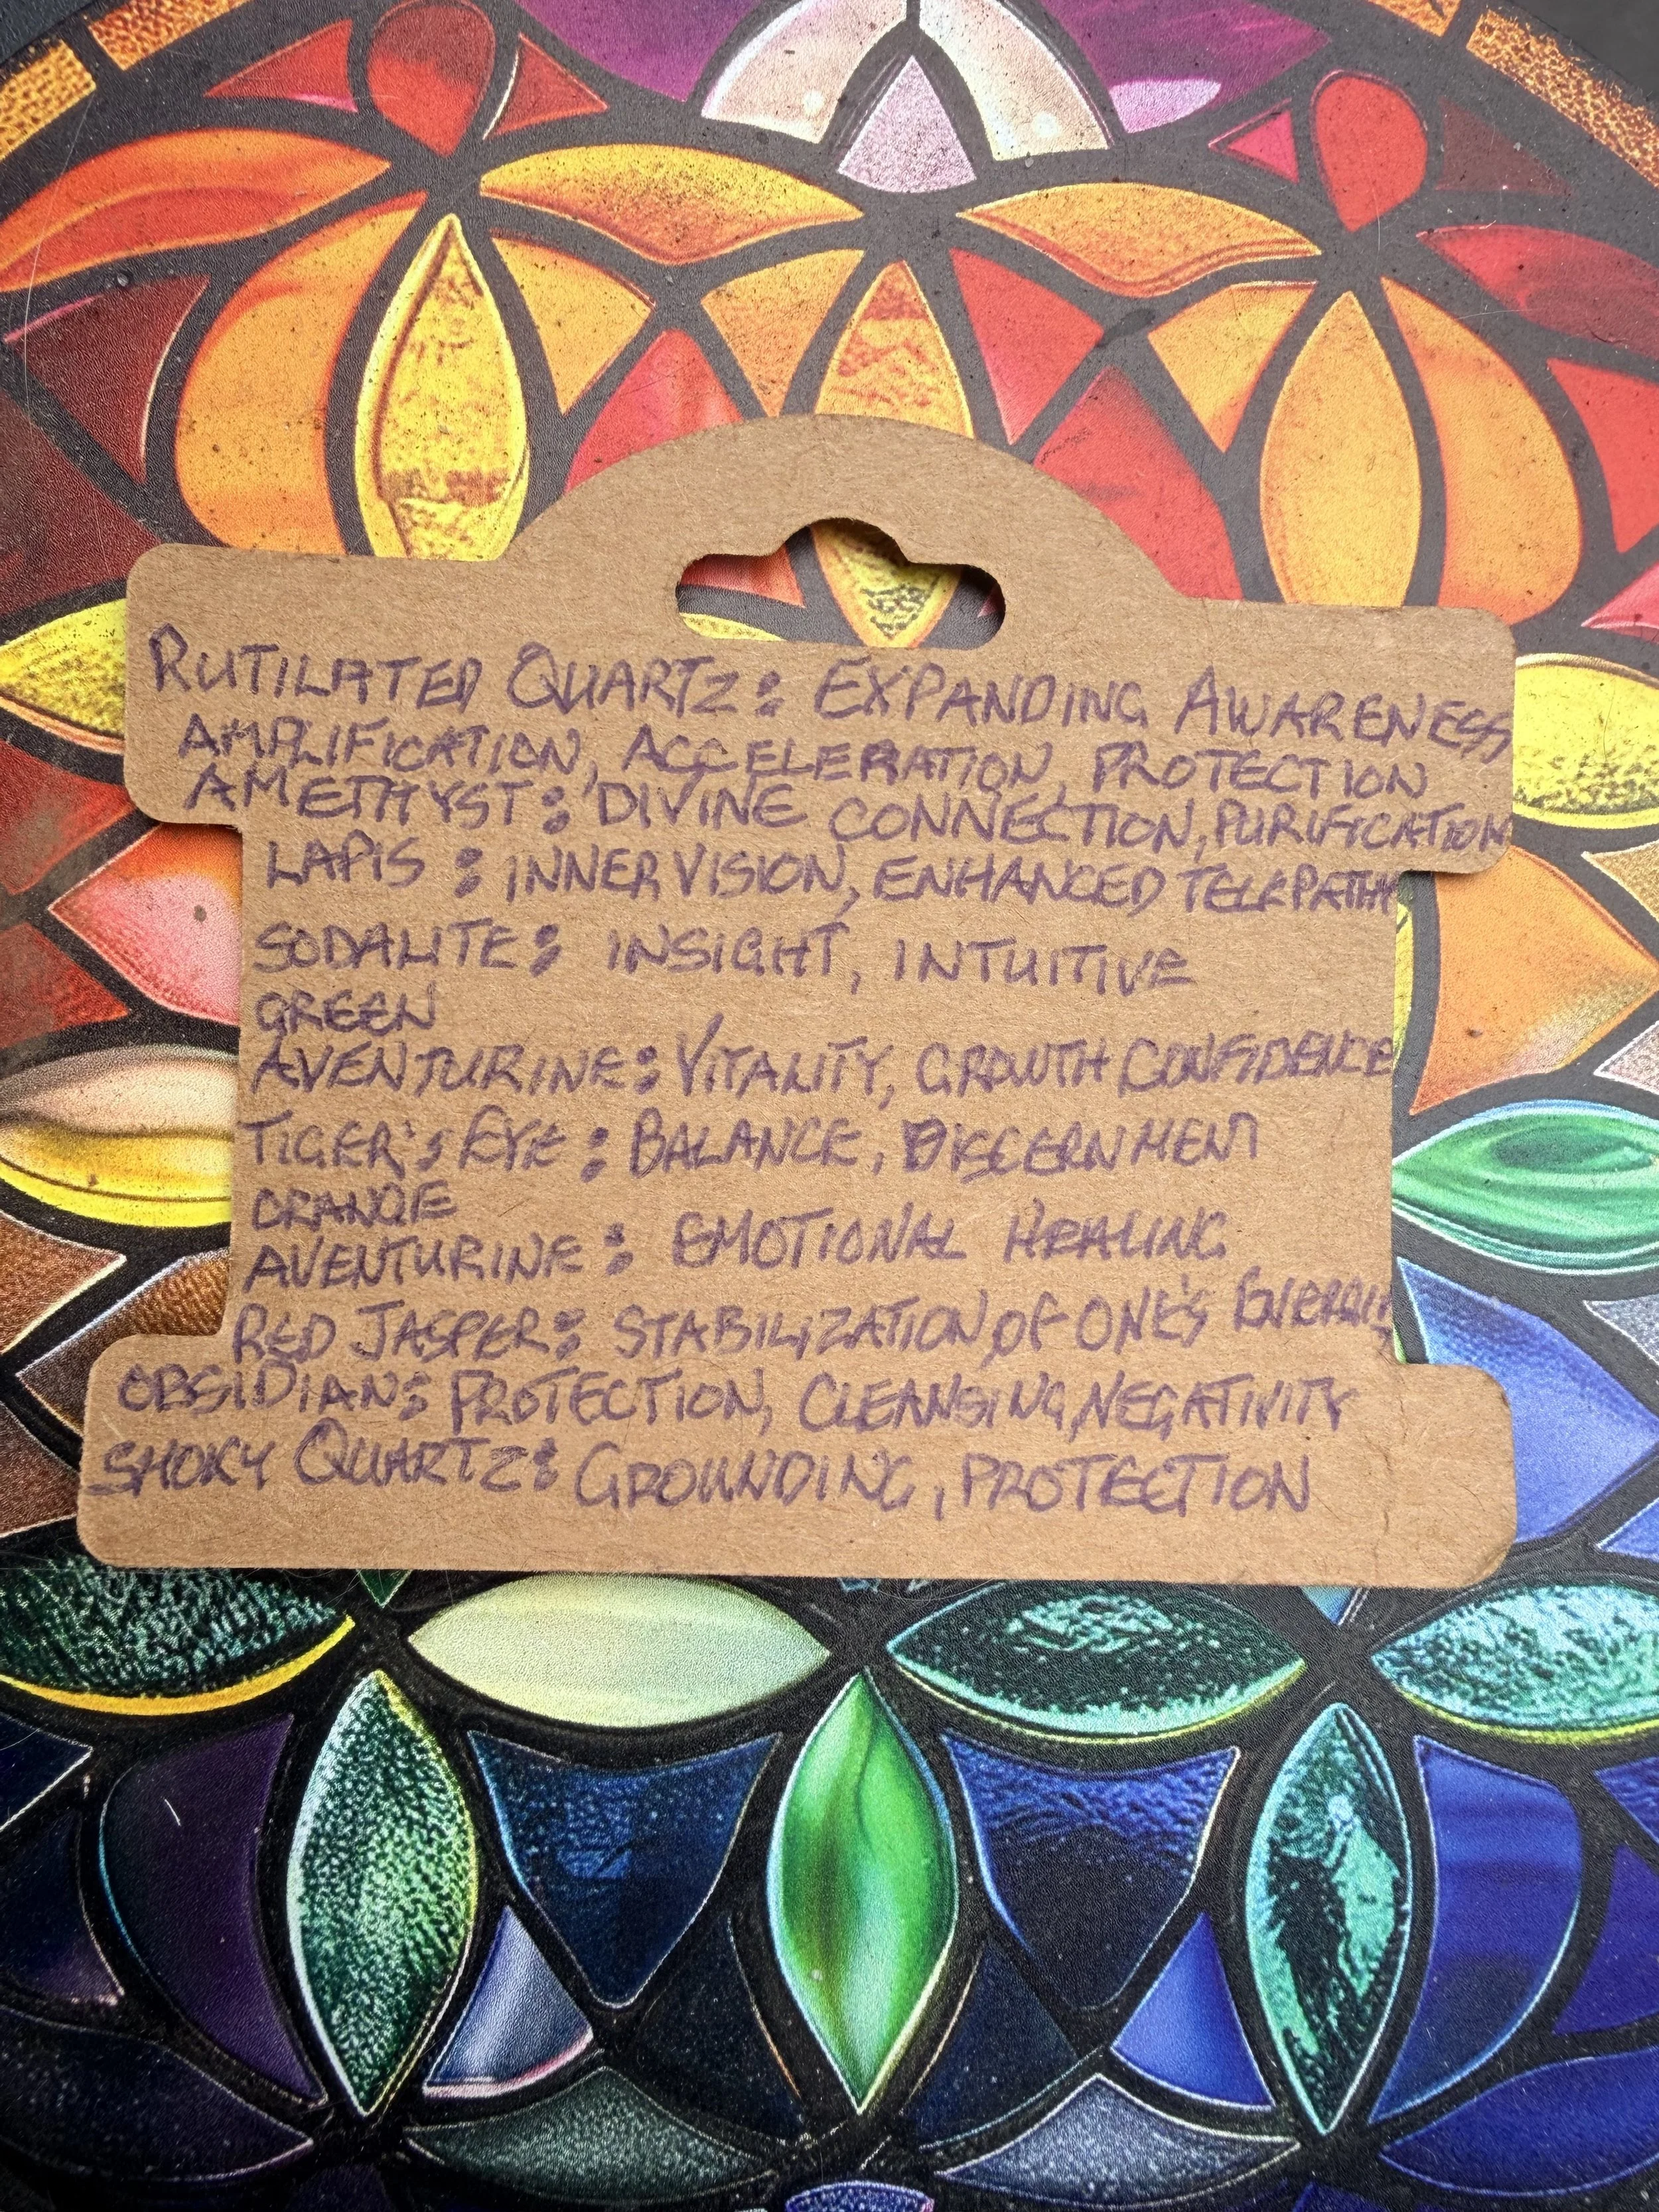 RUTILATED QUARTZ: EXPANDING AWARENESS
AMPLIFICATION, ACCELERATION, PROTECTION
AMETHYST: DIVINE CONNECTION, PURIFICATION
LAPIS: INNER VISION, ENHANCED TELEPATHY
SODALITE: INSIGHT, INTUITIVE
GREEN
AVENTURINE: VITALITY, GROWTH CONFIDENCE
TIGER'S EYE: BALANCE, DISCERNMENT
ORANGE
AVENTURINE: EMOTIONAL HEALING
RED JASPER: STABILIZATION OF ONE'S
OBSIDIAN: PROTECTION, CLEANSING, NEGATIVITY
SMOKY QUARTZ: GROUNDING, PROTECTION